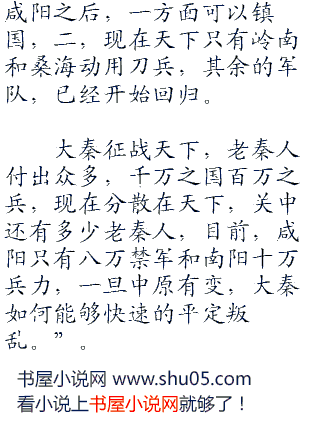 咸阳之后，一方面可以镇
国，二，现在天下只有岭南
和桑海动用刀兵，其余的军
队，已经开始回归。
大秦征战天下，老秦人
付出众多，千万之国百万之
兵，现在分散在天下，关中
还有多少老秦人，目前，咸
阳只有八万禁军和南阳十万
兵力，一旦中原有变，大秦
如何能够快速的平定叛
乱。”。
书屋小说网 www.shu05.com
看小说上书屋小说网就够了！